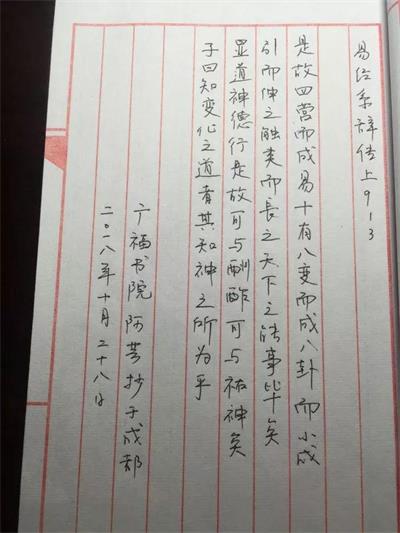 易经系辞传上913
是故四营而成易十有八变而成八卦而小成
引而伸之触类而長之天下之能事毕矣
显道神德行是故可与酬酢可与祐神矣
子曰知变化之道者其知神之所为乎
广福书院阿芸抄于成都
二〇一八年十月二十八日